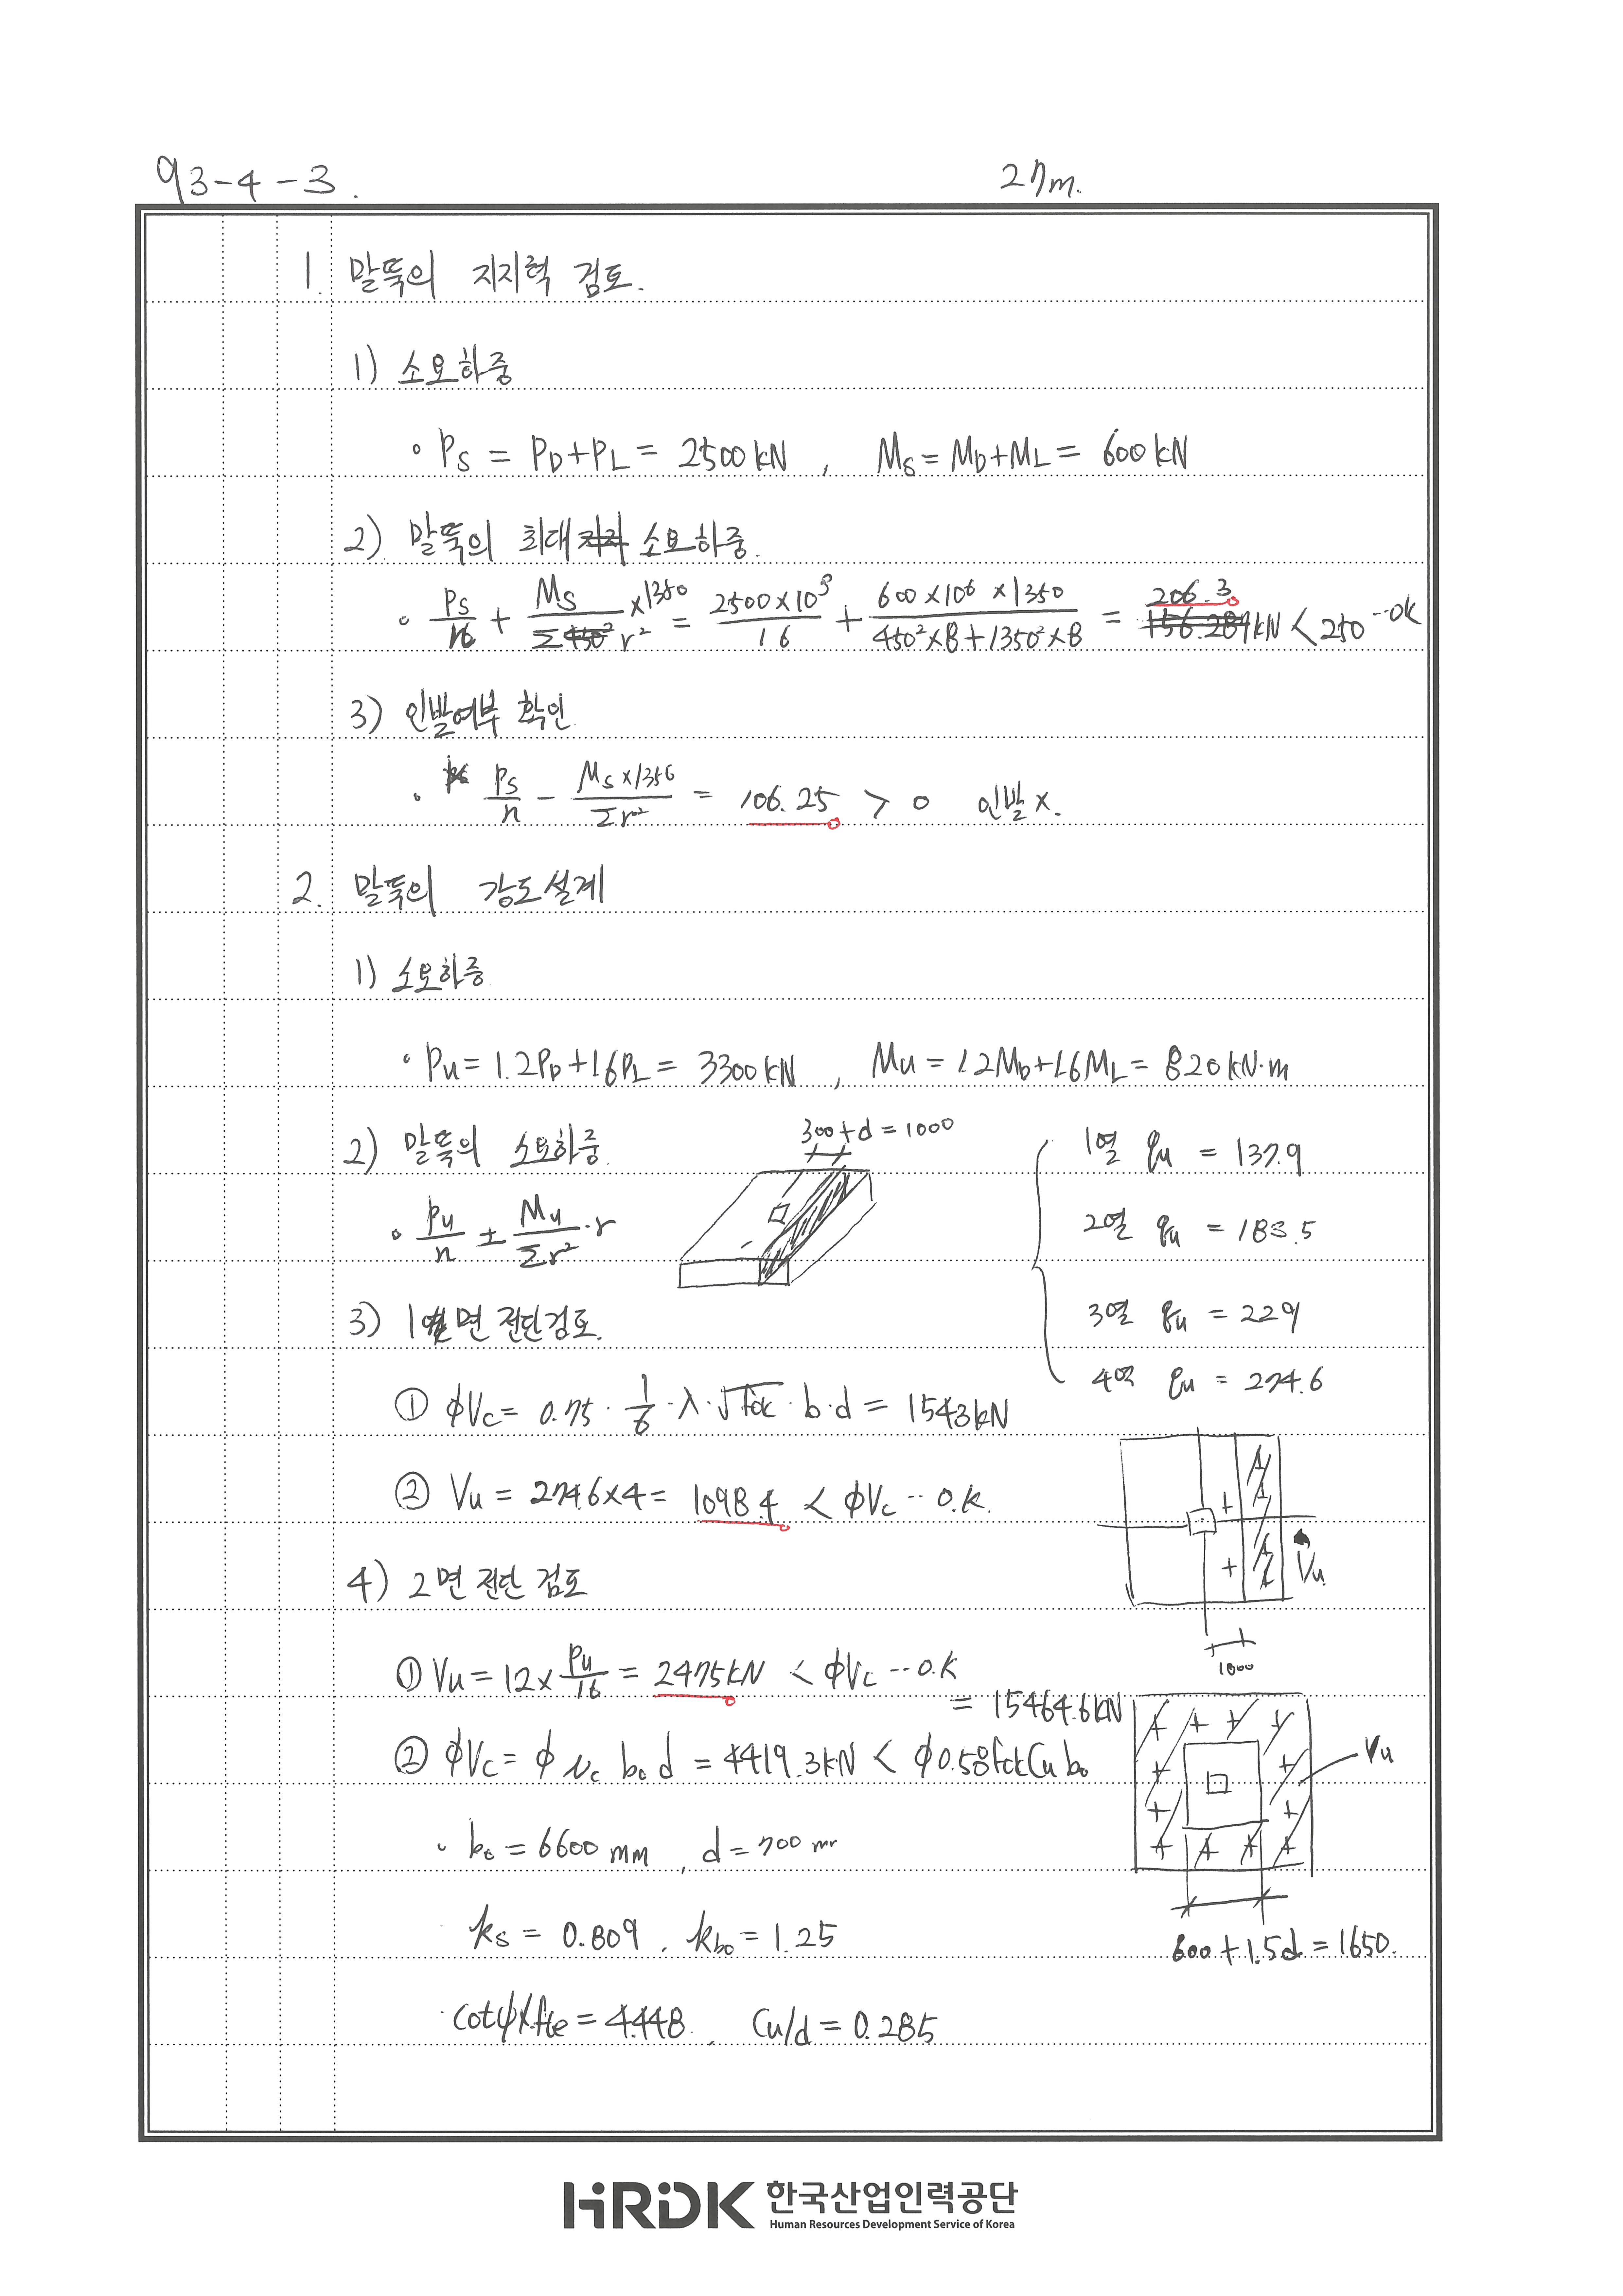 93-4-3.
27m.
1. 말뚝의 지지력 검토.
1) 소요하중
∘ PS = PD+PL = 2500kN , MS = MD+ML = 600kN
2) 말뚝의 최대 소요하중.
∘ PS/n + MS/Σr² ×1350 = 2500×10³/16 + 600×10⁶×1350/450²×8+1350²×8 = 206.3 kN < 250 --ok
3) 인발여부 확인
∘ PS/n - MS×1350/Σr² = 106.25 > 0 인발 x.
2. 말뚝의 강도설계
1) 소요하중
∘ Pu = 1.2PD+1.6PL = 3300kN , Mu = 1.2MD+1.6ML = 820kN·m
300+d = 1000
2) 말뚝의 소요하중.
∘ Pu/n ± Mu/Σr² ·r
1열 qu = 137.9
2열 qu = 183.5
3열 qu = 229
4열 qu = 274.6
3) 1면 전단검토.
① φVc = 0.75 · 1/6 · λ · √fck · b · d = 1543kN
② Vu = 274.6×4 = 1098.4 < φVc -- O.K.
Vu
1000
4) 2면 전단 검토
① Vu = 12× Pu/16 = 2475kN < φVc -- O.K
= 15464.6kN
② φVc = φ vc bo d = 4419.3kN < φ0.58fckCu bo
Vu
∘ bo = 6600 mm , d = 700 mm
ks = 0.809 , kbo = 1.25
600+1.5d = 1650.
· cotψ×fte = 4.448 , Cu/d = 0.285
HRDK 한국산업인력공단
Human Resources Development Service of Korea